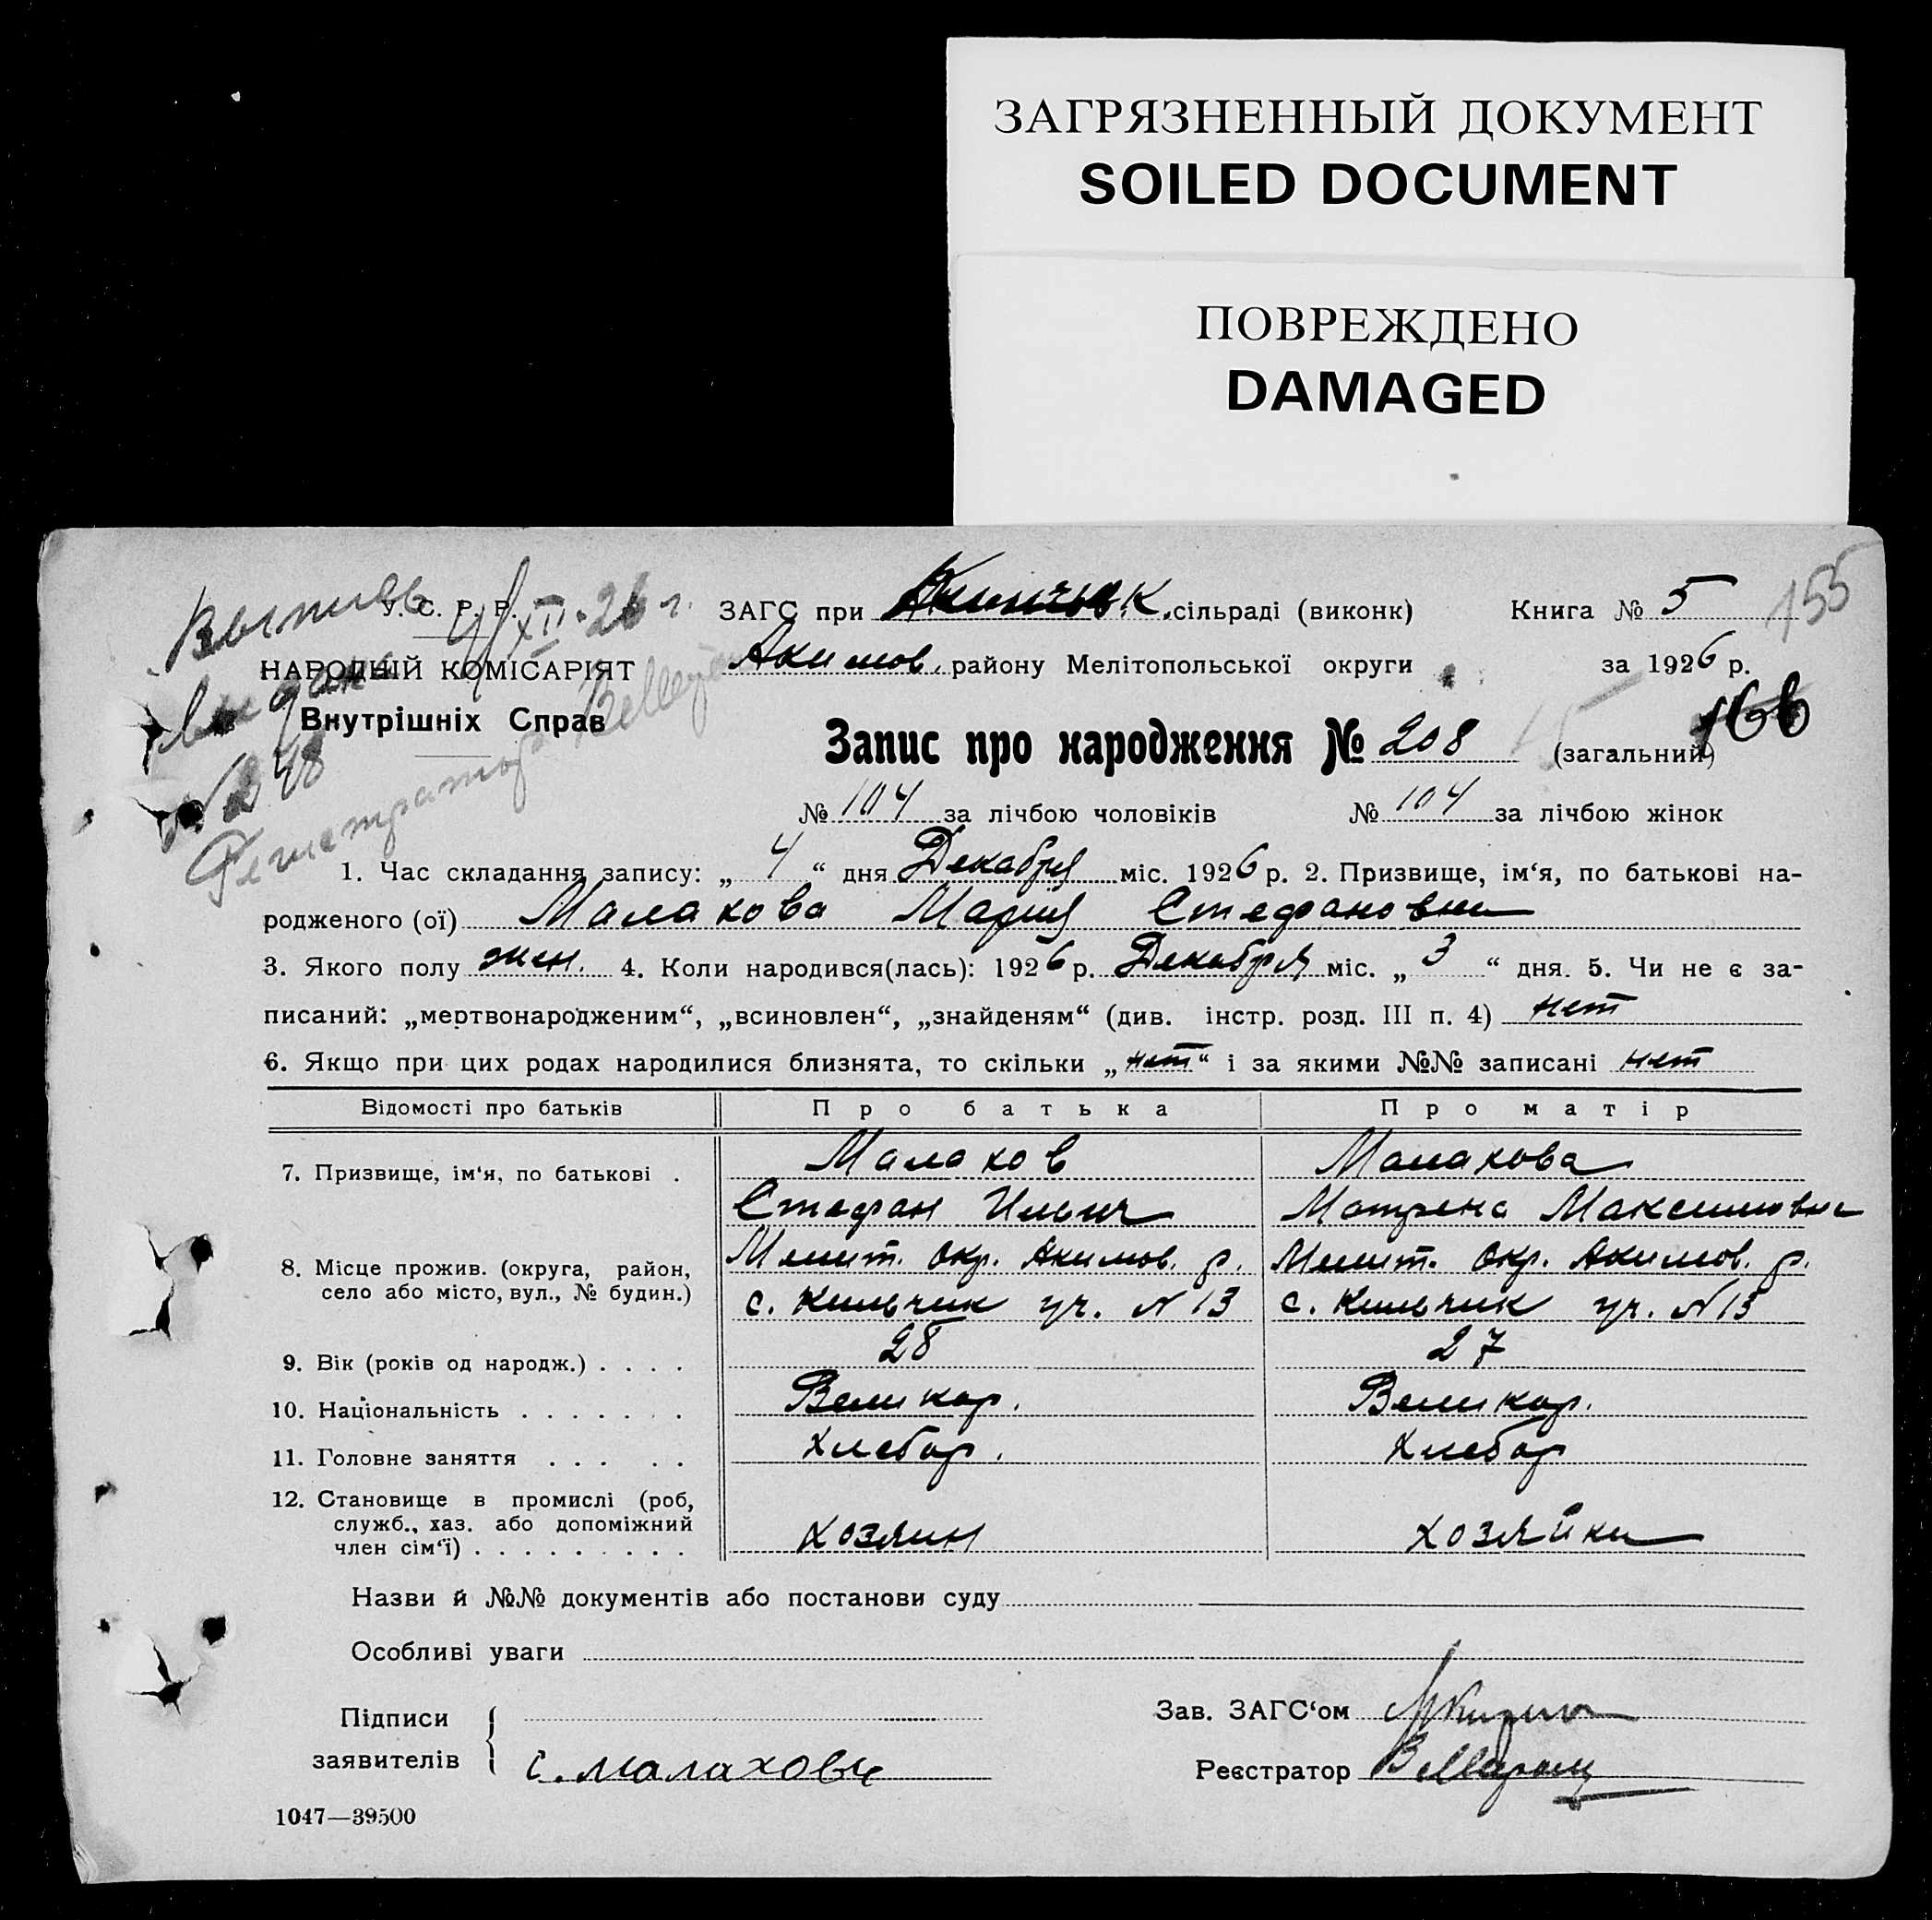 ЗАГРЯЗНЕННЫЙ ДОКУМЕНТ
SOILED DOCUMENT
ПОВРЕЖДЕНО
DAMAGED
У. С. Р. Р. ЗАГС при сільраді (виконк) Книга № 5 155
Выпись 4/XII-26 г.
НАРОДНІЙ КОМІСАРІЯТ Акимов. району Мелітопольської округи за 1926 р.
выдана
Внутрішніх Справ
Запис про народження № 208 (загальний) 166
№ 248
Регистратор
№ 104 за лічбою чоловіків № 104 за лічбою жінок
1. Час складання запису: „ 4 “ дня Декабря міс. 1926 р. 2. Призвище, ім‘я, по батькові на-
родженого (ої) Малахова Мария Стефановна
3. Якого полу жен. 4. Коли народився(лась): 1926 р. Декабря міс. „ 3 “ дня. 5. Чи не є за-
писаний: „мертвонародженим“, „всиновлен“, „знайденям“ (див. інстр. розд. III п. 4) нет
6. Якщо при цих родах народилися близнята, то скільки „нет“ і за якими №№ записані нет
Відомості про батьків Про батька Про матір
7. Призвище, ім‘я, по батькові . Малахов Малахова
Стефан Ильич Матрена Максимовна
8. Місце прожив. (округа, район, Мелит. Окр. Акимов. р. Мелит. Окр. Акимов. р.
село або місто, вул., № будин.) с. Кильчик уч. N 13 с. Кильчик уч. N 13
9. Вік (років од народж.) . . . . 28 27
10. Національність . . . . . . . Великор. Великор.
11. Головне заняття . . . . . Хлебор. Хлебор
12. Становище в промислі (роб,
служб., хаз. або допоміжний
член сім‘ї) . . . . . . . . . Хозяин Хозяйка
Назви й №№ документів або постанови суду
Особливі уваги
Підписи Зав. ЗАГС‘ом
заявителів С. Малахов Реєстратор
1047—39500